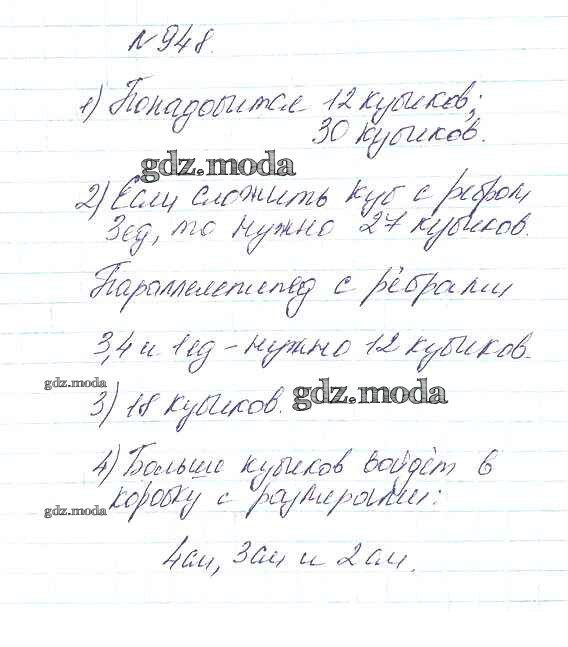 №948.
1) Понадобится 12 кубиков;
30 кубиков.
gdz.moda
2) Если сложить куб с ребром
3ед, то нужно 27 кубиков.
Параллелепипед с рёбрами
3,4 и 1ед - нужно 12 кубиков.
gdz.moda
3) 18 кубиков.
gdz.moda
4) Больше кубиков войдёт в
gdz.moda
коробку с размерами:
4см, 3см и 2см.